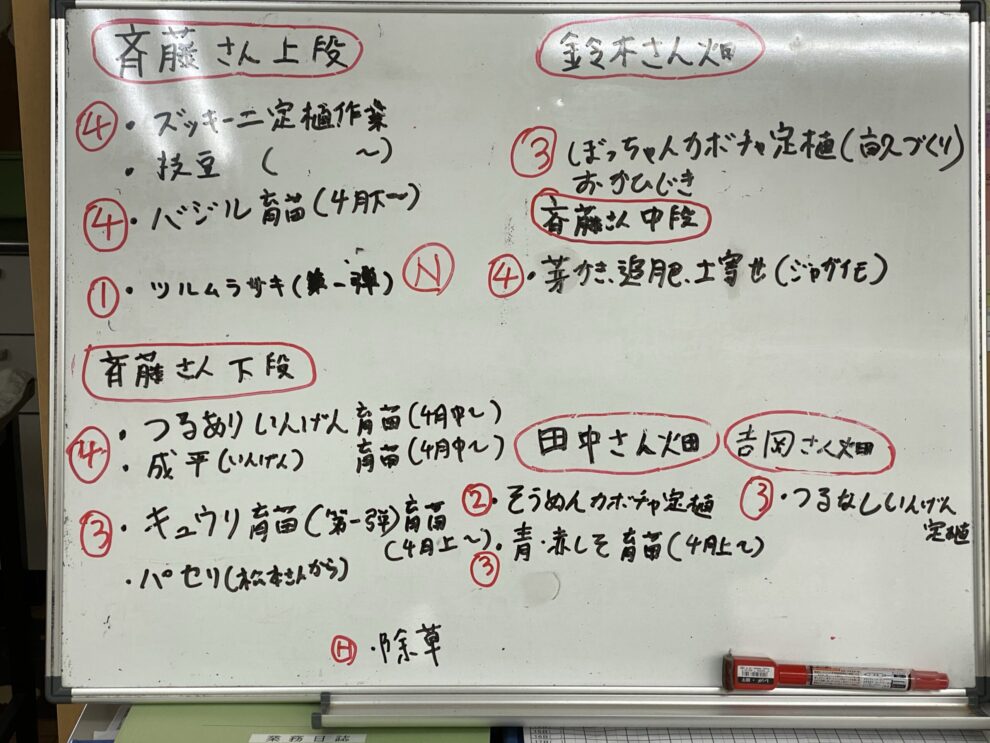 斉藤さん上段
④・ズッキーニ定植作業
・枝豆 ( ～)
④・バジル育苗(4月下～)
①・ツルムラサキ(第一弾) Ⓝ
斉藤さん下段
④・つるありいんげん育苗(4月中～)
・成平(いんげん) 育苗(4月中～)
③・キュウリ育苗(第一弾)育苗
(4月上～)
・パセリ(松本さんから)
Ⓗ・除草
鈴木さん畑
③ぼっちゃんカボチャ定植(畝づくり)
おかひじき
斉藤さん中段
④・芽かき、追肥、土寄せ(ジャガイモ)
田中さん畑
②・そうめんカボチャ定植
・青・赤しそ育苗(4月上～)
③
吉岡さん畑
③・つるなしいんげん
定植
業務日誌